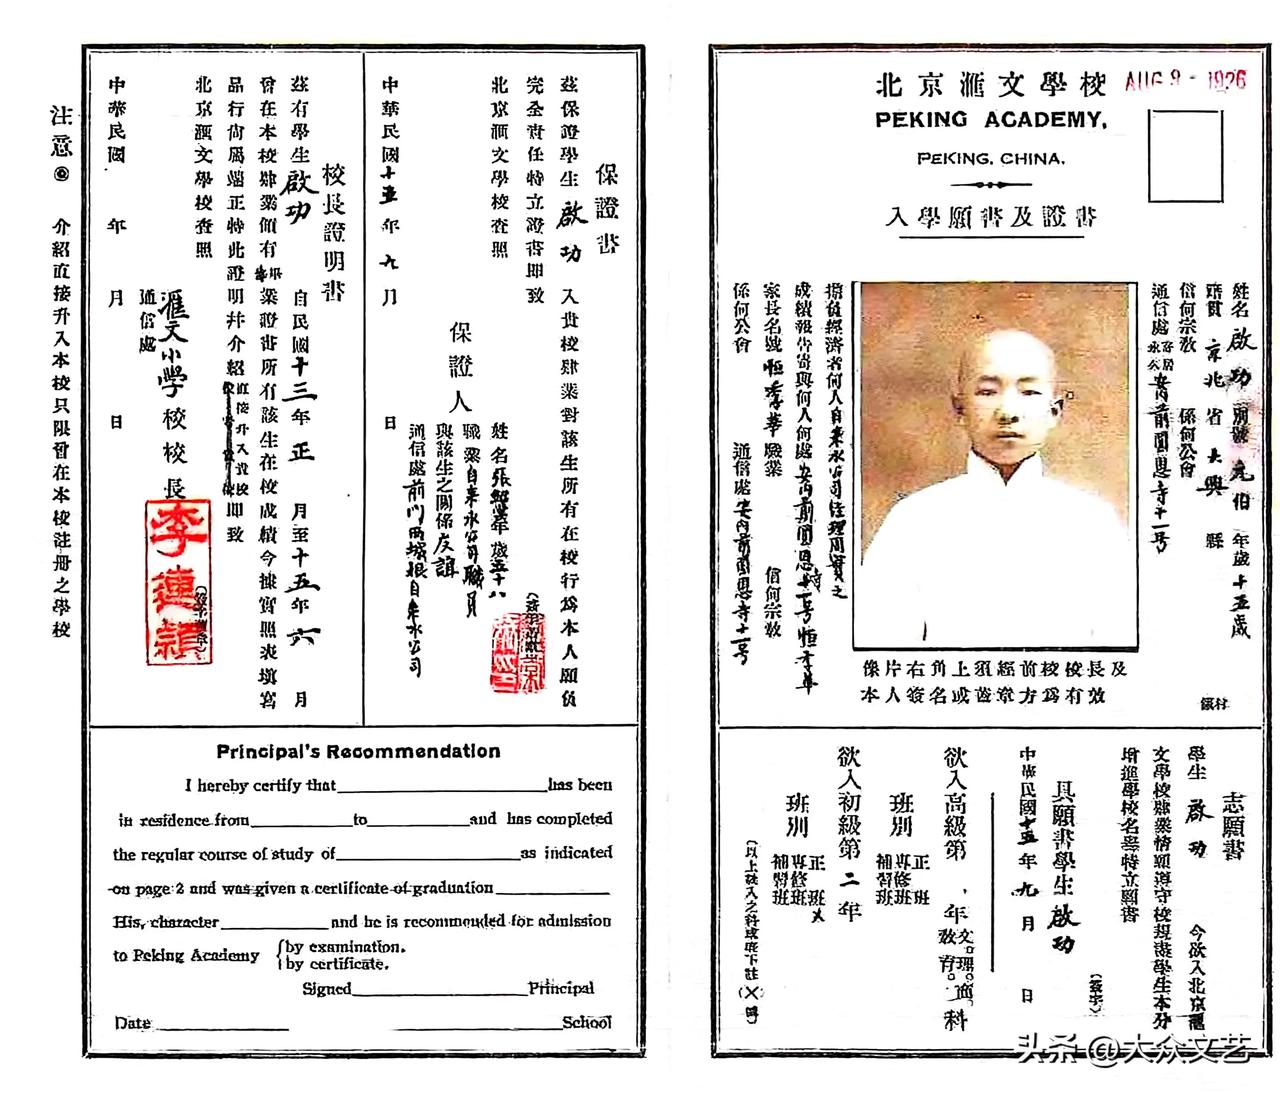 北京滙文學校
AUG 9 - 1926
PEKING ACADEMY,
PEKING, CHINA.
入學願書及證書
姓名 啟功 別號 元伯 年歲 十五歲
籍貫 京兆 省 大興 縣
信何宗教 係何公會
通信處 安內前圓恩寺十一號
擔負經濟者何人 自來水公司經理周實之
成績報告寄與何人何處 安內前圓恩寺十一號恒季華
家長名號 恒季華 職業 信何宗教
係何公會 通信處 安內前圓恩寺十一號
像片右角上須經前校校長及
本人簽名或蓋章方為有效
志願書
學生 啟功 今欲入北京滙
文學校肄業情願遵守校規盡學生本分
增進學校名譽特立願書
具願書學生 啟功 (簽字)
中華民國十五年九月 日
欲入高級第 年 文。理。商。教育。科
班別 正班 專修班 補習班
欲入初級第二年
班別 正班 X 專修班 補習班
(以上強入之科或班下註(X)號)
保證書
茲保證學生 啟功 入貴校肄業對該生所有在校行為本人願負
完全責任特立證書即致
北京滙文學校查照
保證人
姓名 張紹堂 年歲 五十八
職業 自來水公司職員
與該生之關係 友誼
通信處 前門西城根自來水公司
中華民國十五年九月 日
校長證明書
茲有學生 啟功 自民國十三年正月至十五年六月
曾在本校肄業領有畢業證書所有該生在校成績今據實照表填寫
品行尚屬端正特此證明并介紹直接升入貴校即致
北京滙文學校查照
滙文小學校校長
李連穎
通信處
中華民國 年 月 日
注意◎ 介紹直接升入本校只限曾在本校注冊之學校
Principal's Recommendation
I hereby certify that has been
in residence from to and has completed
the regular course of study of as indicated
on page 2 and was given a certificate of graduation
His, character and he is recommended for admission
to Peking Academy {by examination.
by certificate.
Signed Principal
Date School
头条 @大众文艺